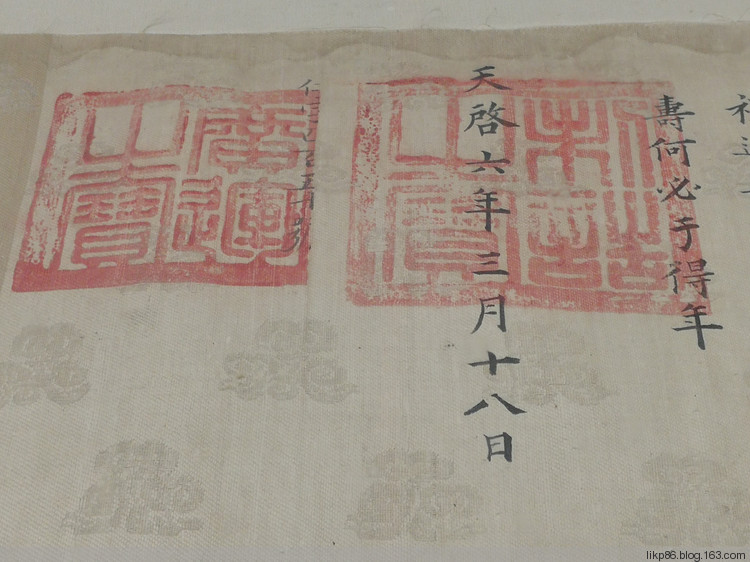 壽何必于得年
天啓六年三月十八日
制誥之寶
廣運之寶
likp86.blog.163.com